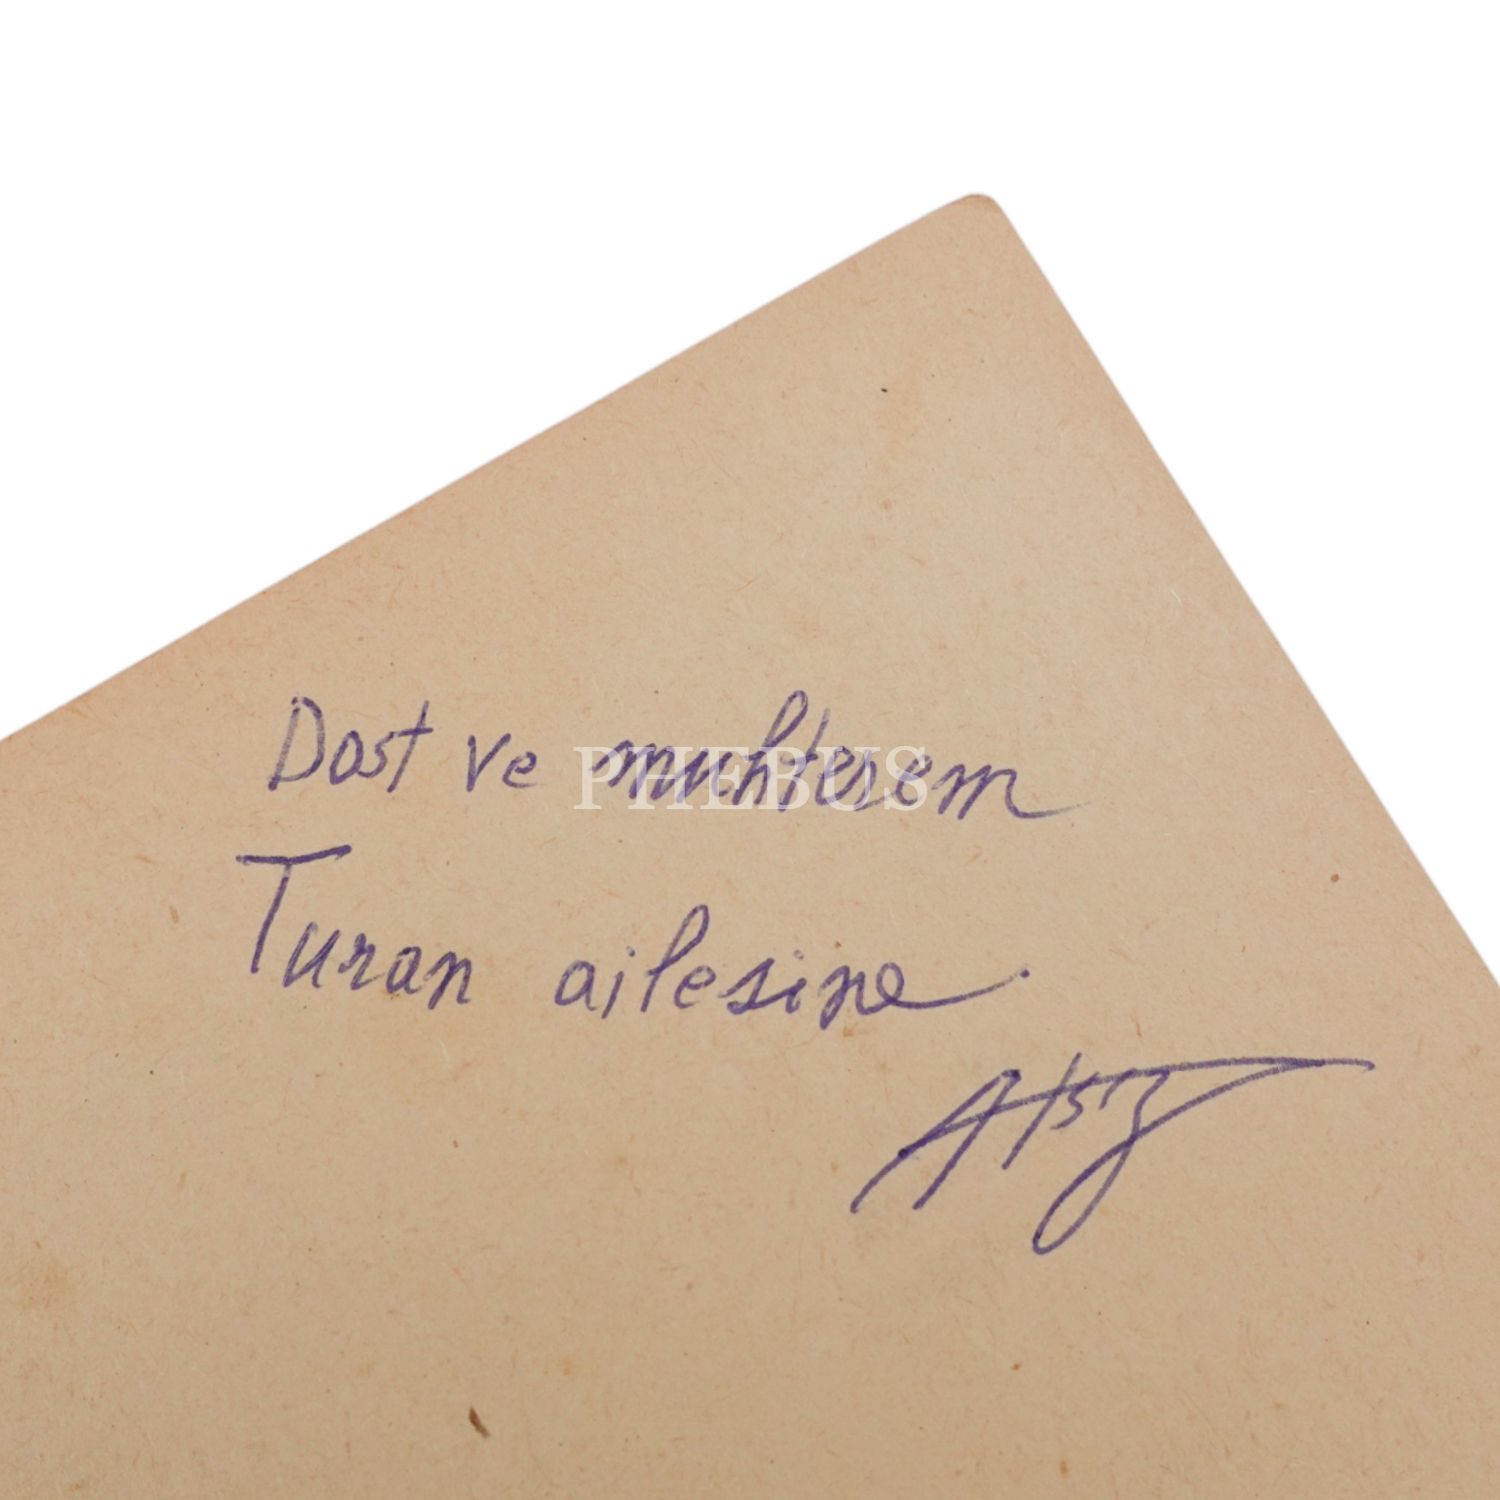 Dost ve muhterem
PHEBUS
Turan ailesine.
Atsız